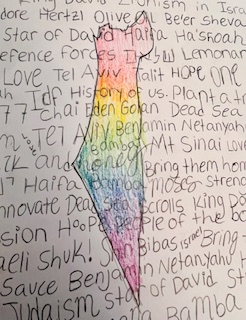 King David Zionism in Isra
dore Hertzl Olive oil Be'er Sheva
Star of David Haifa Ha'snoah
efence Forces Lemonar
LOVE Tel Aviv Tallit HOPE one
ah Idf History of us. Planta t
77 Chai Eden Golan Dead Sea
m Tel Aviv Benjamin Netanyah
Bamba Mt Sinai Love
ilk and Honey Bring them hom
17 Haifa Bamba Moses Strength
nnovate Dead Sea Scrolls King Do
sion Hoopoe People of the bo
aeli Shuk! Shiri Bibas Israel Bring
Sauce Benjamin Netanyahu H
Judaism Star of David St
Bamba